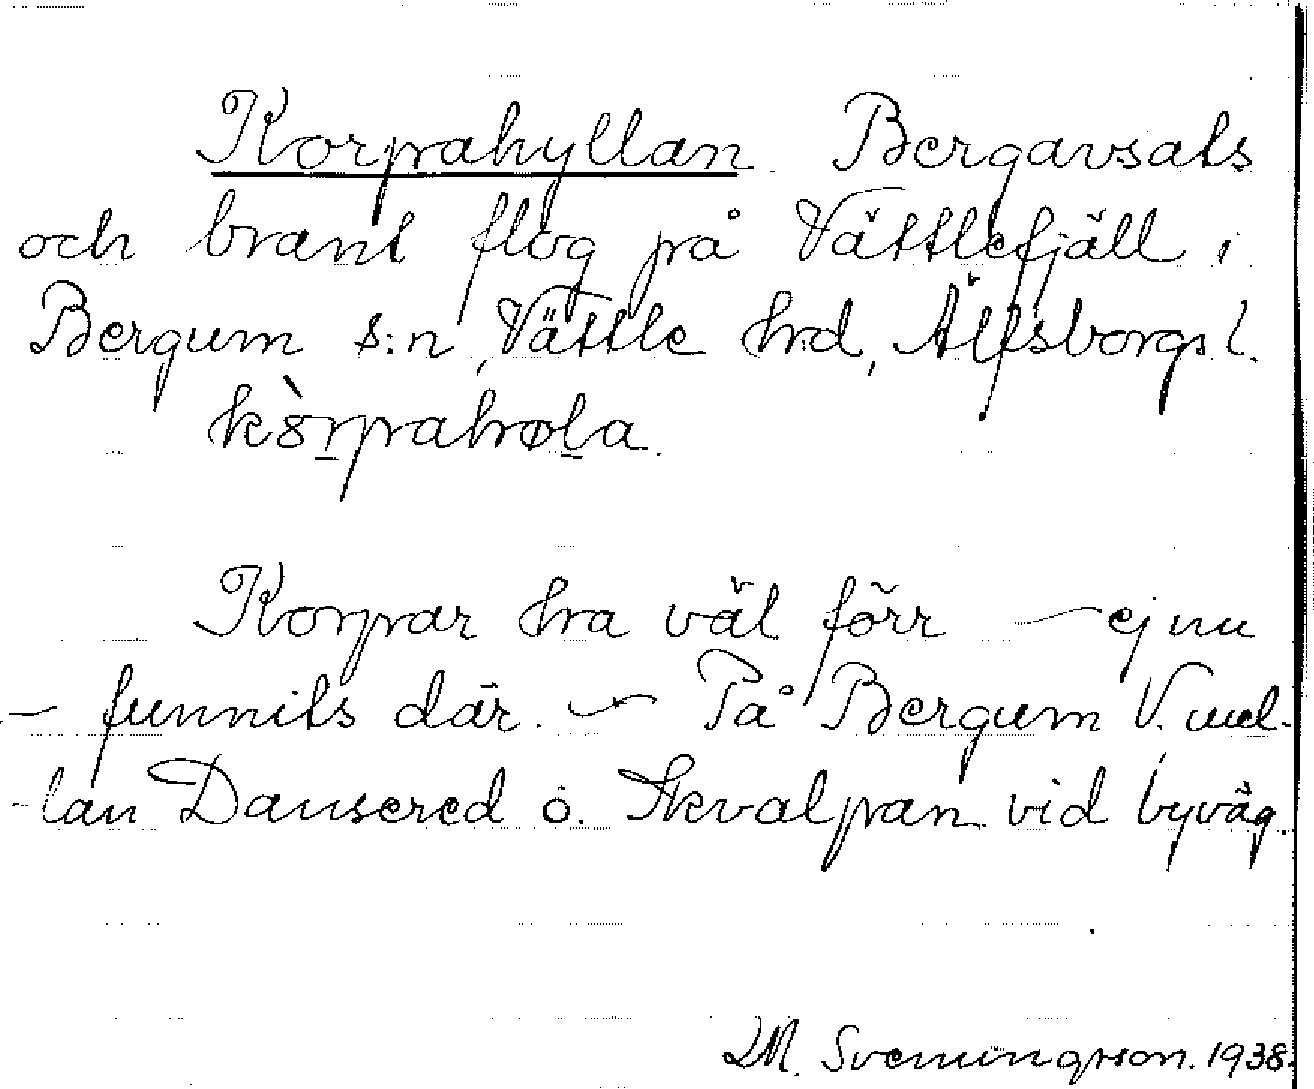 Korpahyllan Bergavsats
och brant flog på Vättlefjäll i
Bergum s:n, Vättle hrd, Älfsborgs l.
Korpar ha väl förr — ej nu
— funnits där. — På Bergum V. mel-
-lan Dansered o. Skvalpan vid byväg.
Svenningsson. 1938.